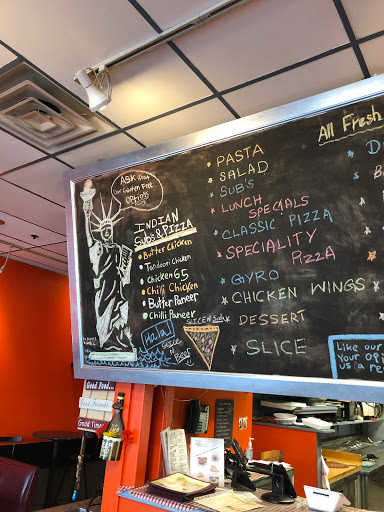 ASK About
Our Gluten Free
Options
INDIAN
Sub's & PIZZA
* Butter Chicken
* Tandoori Chicken
* Chicken 65
* Chilli Chicken
* Butter Paneer
* Chilli Paneer
Halal
SLICE N
Beer
SLICE N Sub
All Fresh
* PASTA
* SALAD
* SUB'S
* LUNCH SPECIALS
* CLASSIC PIZZA
* SPECIALITY
PIZZA
* GYRO
* CHICKEN WINGS
* DESSERT
* SLICE
Like our
Your opi
us a re
Good Food...
Good Friends
Good Time